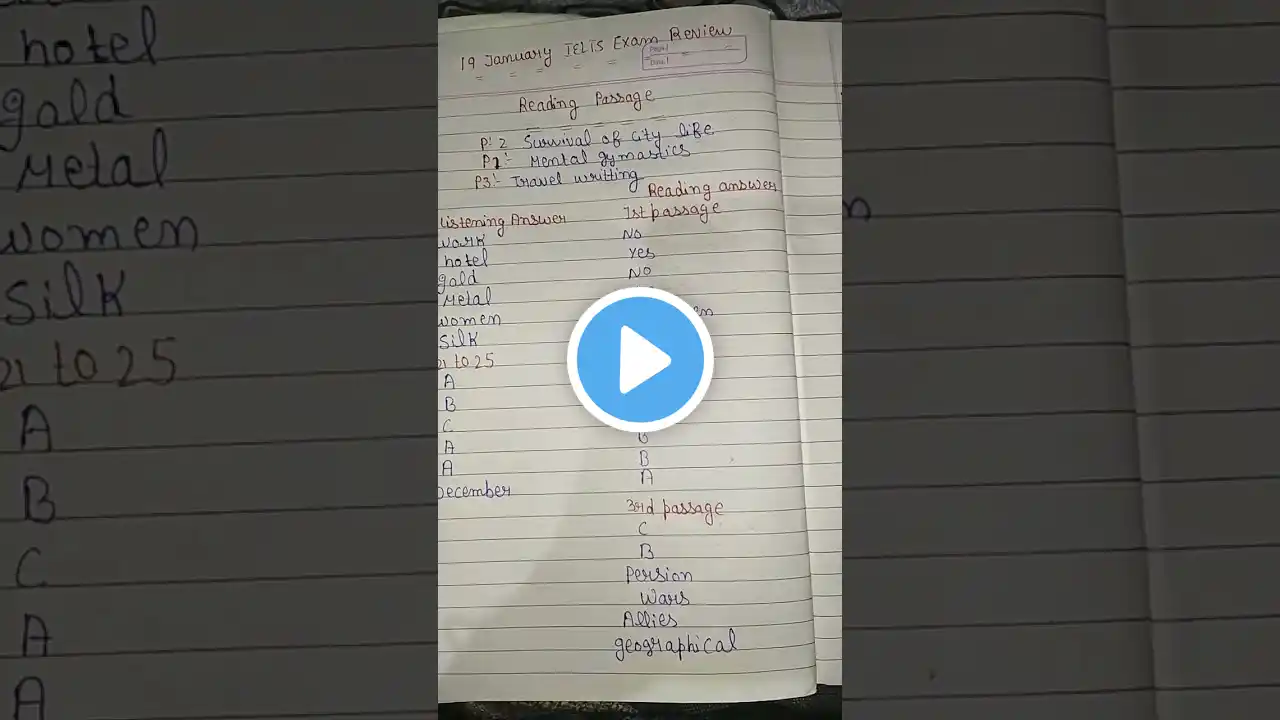 hotel
gold
Metal
women
Silk
21 to 25
A
B
C
A
A
19 January IELTS Exam Review
Reading Passage
P:2 Survival of city life
P1:- Mental gymastics
P3:- Travel writting
Listening Answer
work
hotel
gold
Metal
women
Silk
21 to 25
A
B
C
A
A
December
Reading answer
1st passage
No
Yes
No
B
B
A
3rd passage
C
B
Persion
Wars
Allies
geographical